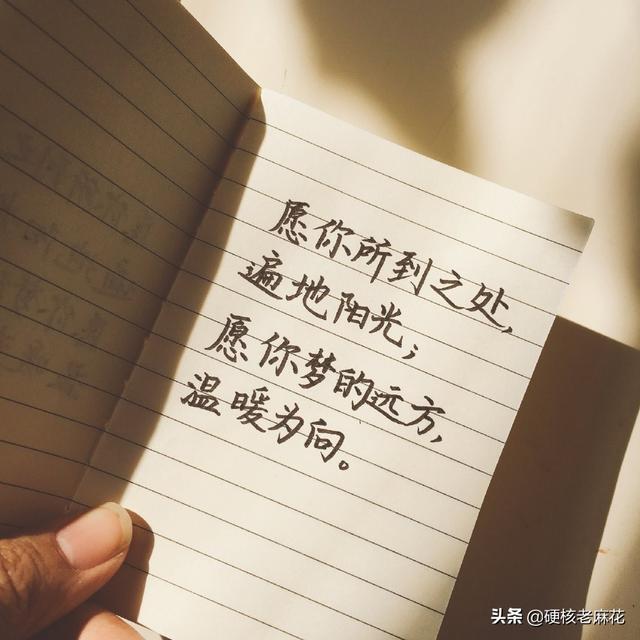 愿你所到之处,
遍地阳光;
愿你梦的远方,
温暖为向。
头条 @硬核老麻花